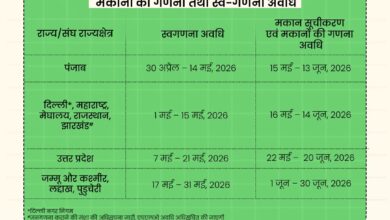 मकानों की गणना तथा स्व-गणना अवधि
राज्य/संघ राज्यक्षेत्र
स्वगणना अवधि
मकान सूचीकरण
एवं मकानों की गणना
अवधि
पंजाब
30 अप्रैल – 14 मई, 2026
15 मई – 13 जून, 2026
दिल्ली*, महाराष्ट्र,
मेघालय, राजस्थान,
झारखंड*
1 मई – 15 मई, 2026
16 मई – 14 जून, 2026
उत्तर प्रदेश
7 मई – 21 मई, 2026
22 मई – 20 जून, 2026
जम्मू और कश्मीर,
लद्दाख, पुडुचेरी
17 मई – 31 मई, 2026
1 जून – 30 जून, 2026
*दिल्ली नगर निगम